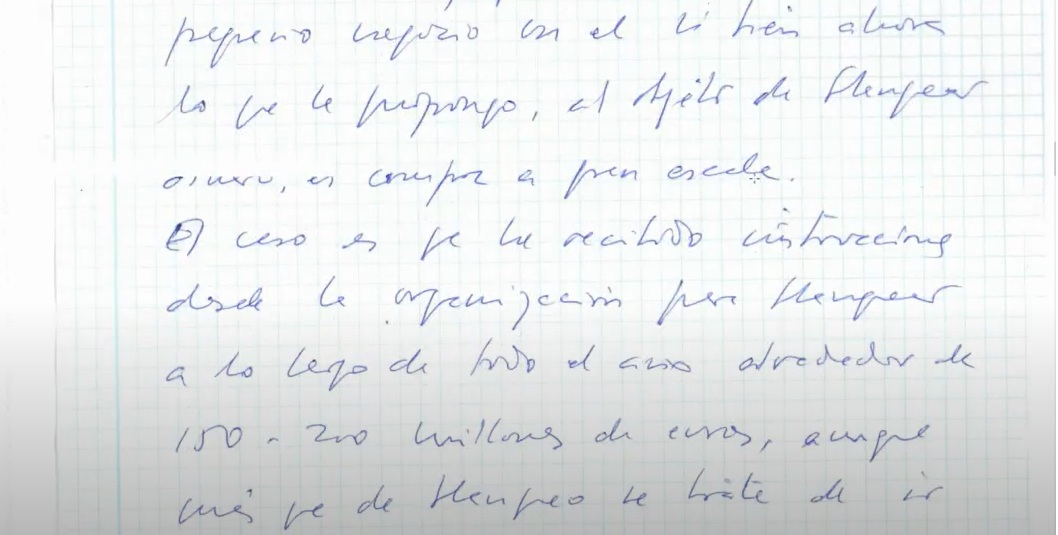 pequeño negocio con el si bien ahora
lo que le propongo, al objeto de blanquear
dinero, es compra a gran escala.
El caso es que he recibido instrucciones
desde la organización para blanquear
a lo largo de todo el año alrededor de
150 - 200 millones de euros, aunque
más que de blanqueo se trate de ir